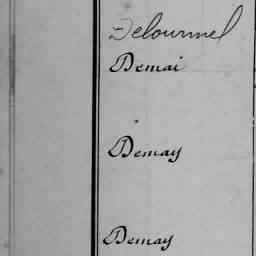 Delourmel
Demai
Demay
Demay